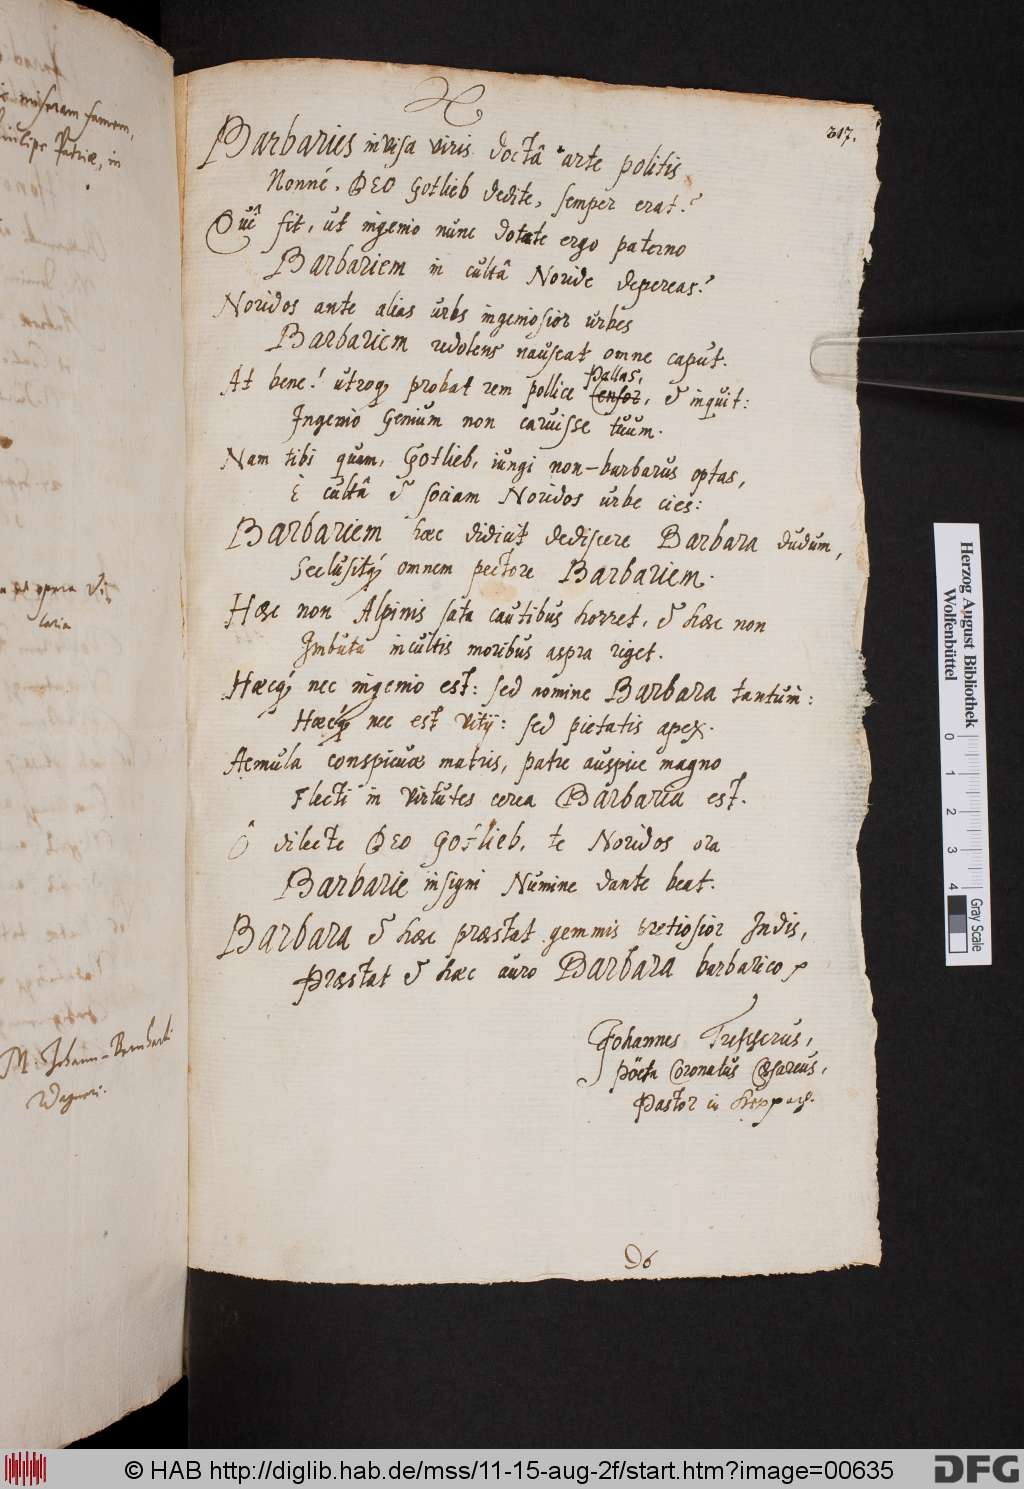 is miseram famem,
Patriæ, in
M. Johann-Bernhardi
Wagneri.
317.
Barbaries invisa viris doctâ arte politis
Nonné, DEO Gotlieb dedite, semper erat?
Quî fit, ut ingenio nunc dotate ergo paterno
Barbariem in cultâ Noride depereas?
Noridos ante alias urbs ingeniosior urbes
Barbariem redolens nauseat omne caput.
At bene! utroq; probat rem pollice Censor Pallas, & inquit:
Ingenio Genium non caruisse tuum.
Nam tibi quam, Gotlieb, iungi non-barbarus optas,
È cultâ & sociam Noridos urbe cies:
Barbariem hæc didicit dediscere Barbara dudum,
Seclusitq; omnem pectore Barbariem.
Hæc non Alpinis sata cautibus horret, & hæc non
Imbuta incultis moribus aspra riget.
Hæcq; nec ingenio est: sed nomine Barbara tantum:
Hæcq; nec est vitij: sed pietatis apex.
Aemula conspicuæ matris, patre auspice magno
Flecti in virtutes cerea Barbaria est.
Ô dilecte DEO Gotlieb, te Noridos ora
Barbarie insigni Numine dante beat.
Barbara & hæc præstat gemmis pretiosior Indis,
Præstat & hæc auro Barbara barbarico.
Johannes Trefferus,
Pöeta Coronatus Cæsareus,
Pastor in
D6
Herzog August Bibliothek
Wolfenbüttel
0 1 2 3 4
Gray Scale
© HAB http://diglib.hab.de/mss/11-15-aug-2f/start.htm?image=00635
DFG